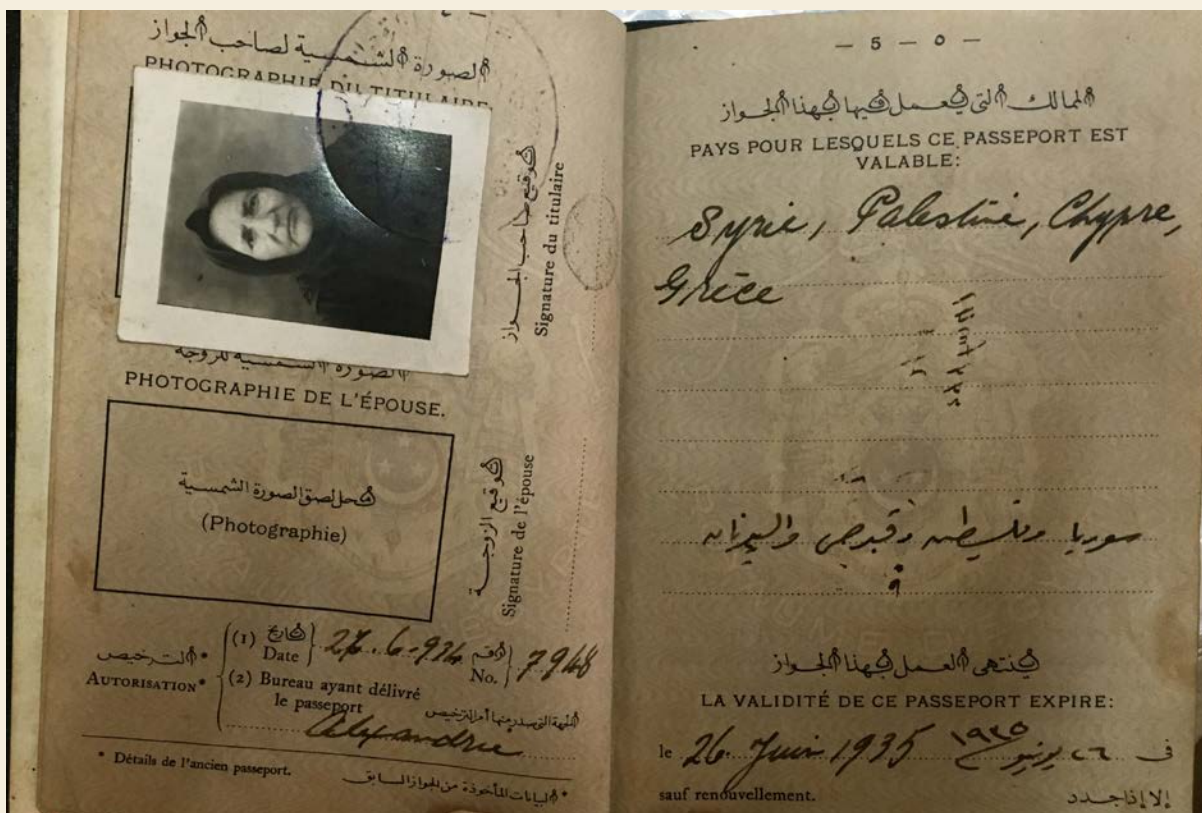 الصورة الشمسية لصاحب الجواز
PHOTOGRAPHIE DU TITULAIRE
توقيع صاحب الجواز
Signature du titulaire
الصورة الشمسية للزوجة
PHOTOGRAPHIE DE L'ÉPOUSE.
محل لصق الصورة الشمسية
(Photographie)
توقيع الزوجة
Signature de l'épouse
الترخيص *
AUTORISATION*
(1) تاريخ
Date 27.6.934 رقم No. 7948
(2) Bureau ayant délivré
le passeport
الجهة التي صدر منها أمر الترخيص
Alexandrie
* Détails de l'ancien passeport.
* البيانات المأخوذة من الجواز السابق
— 5 — ٥ —
الممالك التي يعمل فيها بهذا الجواز
PAYS POUR LESQUELS CE PASSEPORT EST
VALABLE:
Syrie, Palestine, Chypre,
Grèce
سوريا وفلسطين وقبرص واليونان
ينتهى العمل بهذا الجواز
LA VALIDITÉ DE CE PASSEPORT EXPIRE:
le 26 Juin 1935 فى ٢٦ يونيو ١٩٣٥
sauf renouvellement. إلا إذا جدد